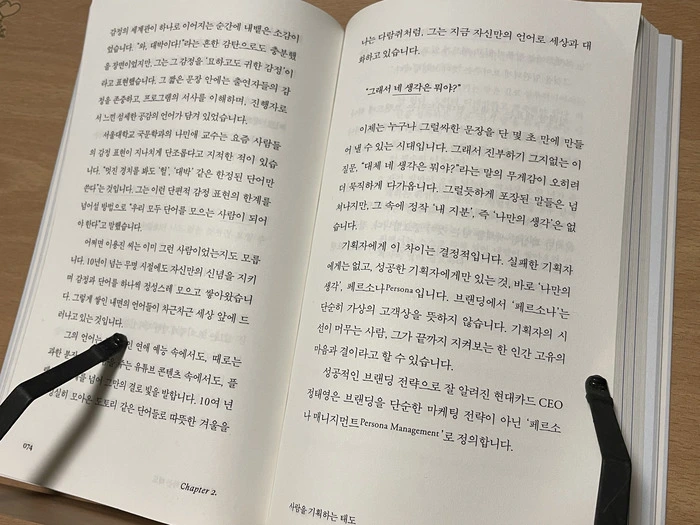 감정의 세계관이 하나로 이어지는 순간에 내뱉은 소감이
었습니다. "와, 대박이다!"라는 흔한 감탄으로도 충분했
을 장면이었지만, 그는 그 감정을 '묘하고도 귀한 감정'이
라고 표현했습니다. 그 짧은 문장 안에는 출연자들의 감
정을 존중하고, 프로그램의 서사를 이해하며, 진행자로
서 느낀 섬세한 공감의 언어가 담겨 있었습니다.
서울대학교 국문학과의 나민애 교수는 요즘 사람들
의 감정 표현이 지나치게 단조롭다고 지적한 적이 있습
니다. "멋진 경치를 봐도 '헐', '대박' 같은 한정된 단어만
쓴다"는 것입니다. 그는 이런 단편적 감정 표현의 한계를
넘어설 방법으로 "우리 모두 단어를 모으는 사람이 되어
야 한다"고 말했습니다.
어쩌면 이용진 씨는 이미 그런 사람이었는지도 모릅
니다. 10년이 넘는 무명 시절에도 자신만의 신념을 지키
며 감정과 단어를 하나씩 정성스레 모으고 쌓아왔습니
다. 그렇게 쌓인 내면의 언어들이 차근차근 세상 앞에 드
러나고 있는 것입니다.
그의 언어는 연애 예능 속에서도, 때로는
과한 분장 유튜브 콘텐츠 속에서도, 플
넘어 그만의 결로 빛을 발합니다. 10여 년
성실히 모아온 도토리 같은 단어들로 따뜻한 겨울을
074
Chapter 2.
나는 다람쥐처럼, 그는 지금 자신만의 언어로 세상과 대
화하고 있습니다.
"그래서 네 생각은 뭐야?"
이제는 누구나 그럴싸한 문장을 단 몇 초 만에 만들
어 낼 수 있는 시대입니다. 그래서 진부하기 그지없는 이
질문, "대체 네 생각은 뭐야?"라는 말의 무게감이 오히려
더 묵직하게 다가옵니다. 그럴듯하게 포장된 말들은 넘
쳐나지만, 그 속에 정작 '내 지분', 즉 '나만의 생각'은 없
습니다.
기획자에게 이 차이는 결정적입니다. 실패한 기획자
에게는 없고, 성공한 기획자에게만 있는 것, 바로 '나만의
생각', 페르소나Persona입니다. 브랜딩에서 '페르소나'는
단순히 가상의 고객상을 뜻하지 않습니다. 기획자의 시
선이 머무는 사람, 그가 끝까지 지켜보는 한 인간 고유의
마음과 결이라고 할 수 있습니다.
성공적인 브랜딩 전략으로 잘 알려진 현대카드 CEO
정태영은 브랜딩을 단순한 마케팅 전략이 아닌 '페르소
나 매니지먼트Persona Management'로 정의합니다.
사람을 기획하는 태도